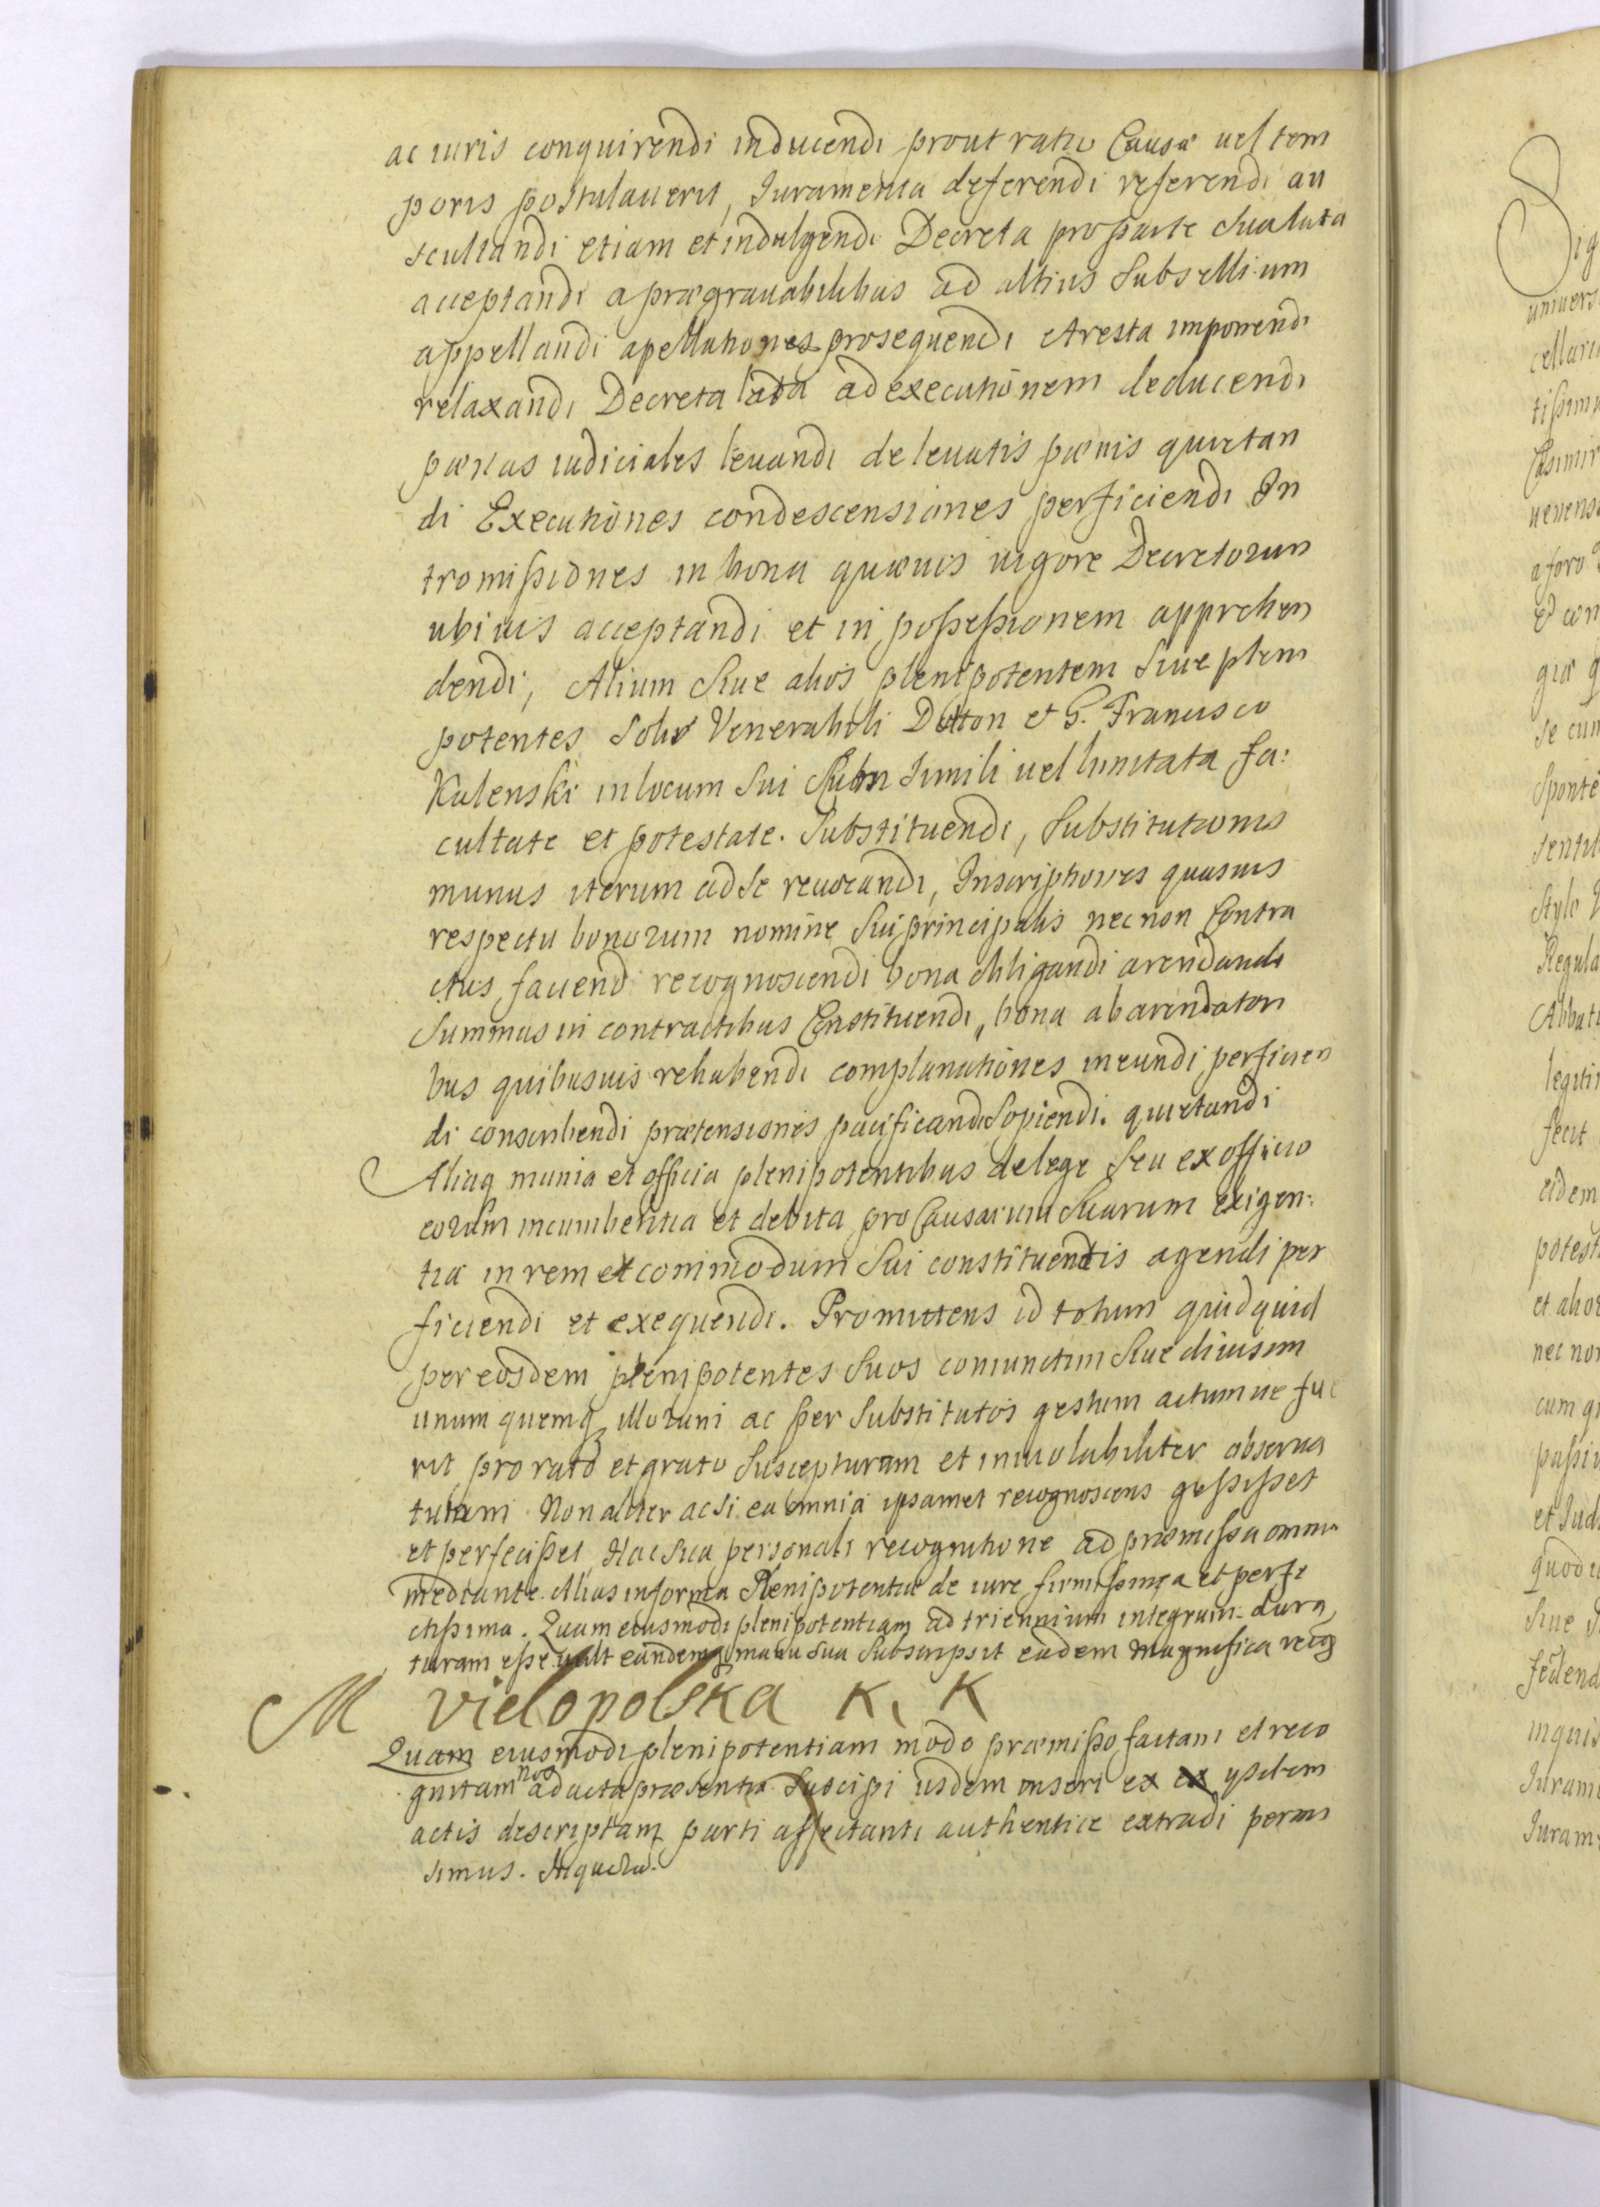 ac iuris conquirendi inducendi prout ratio Causæ uel tem
poris postulauerit, Iuramenta deferendi referendi au
scultandi etiam et indulgendi Decreta pro parte sua lata
acceptandi a prægrauabilibus ad altius Subsellium
appellandi apellationes prosequendi Aresta imponendi
relaxandi Decreta lata ad executionem deducendi
pænas iudiciales leuandi de leuatis pænis quietan
di Executiones condescensiones perficiendi In
tromißiones in bona quæuis uigore Decretorum
ubiuis acceptandi et in poßeßionem apprehen
dendi, Alium Siue alios plenipotentem Siue pleni
potentes Solis Venerabili Detton et G. Francisco
Kulenski in locum Sui cum Simili uel limitata fa:
cultate et potestate. Substituendi, Substitutionis
munus iterum ad se reuocandi, Inscriptiones quasuis
respectu bonorum nomine Sui principalis nec non Contra
ctus faciendi recognoscendi bona obligandi arendandi
Summas in contractibus Constituendi, bona ab arendatori
bus quibusuis rehabendi complanationes ineundi perficien
di conscribendi prætensiones pacificandi Sopiendi. quietandi
Aliaq munia et officia plenipotentibus de lege Seu ex officio
eorum incumbentia et debita pro Causarum Suarum exigen:
tia in rem et commodum Sui constituentis agendi per
ficiendi et exequendi. Promittens id totum quidquid
per eosdem plenipotentes Suos coniunctim Siue diuisim
unum quemq illorum ac per Substitutos gestum actumue fue
rit pro rato et grato Suscepturam et inuiolabiliter obserua
turam Non aliter ac si ea omnia ipsamet recognoscens geßißet
et perfecißet, Hac Sua personali recognitione ad præmißa omnia
mediante. Alias in forma Plenipotentiæ de iure firmißima et perfe
ctißima. Quam eiusmodi plenipotentiam ad triennium integrum dura
turam eße uult eandemq manu sua Subscripsit eadem Magnifica recog
M vielopolska K, K
Quam eiusmodi plenipotentiam modo præmißo factam et reco
gnitam nos ad acta præsentia Suscipi iisdem inseri ex ex ysdem
actis descriptam parti affectanti authentice extradi permi
simus. Atque de
Sig
uniuers
cellari
tißima
Casimir
a foro
se cum
Sponte
Stylo
Regula
Abbati
legiti
fecit
eidem
potest
et alior
nec non
cum q
paßiu
et Iud
quod
Siue
inquis
Iuram
Iuram